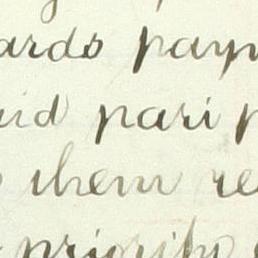 ards paym
id pari p
them re
priority